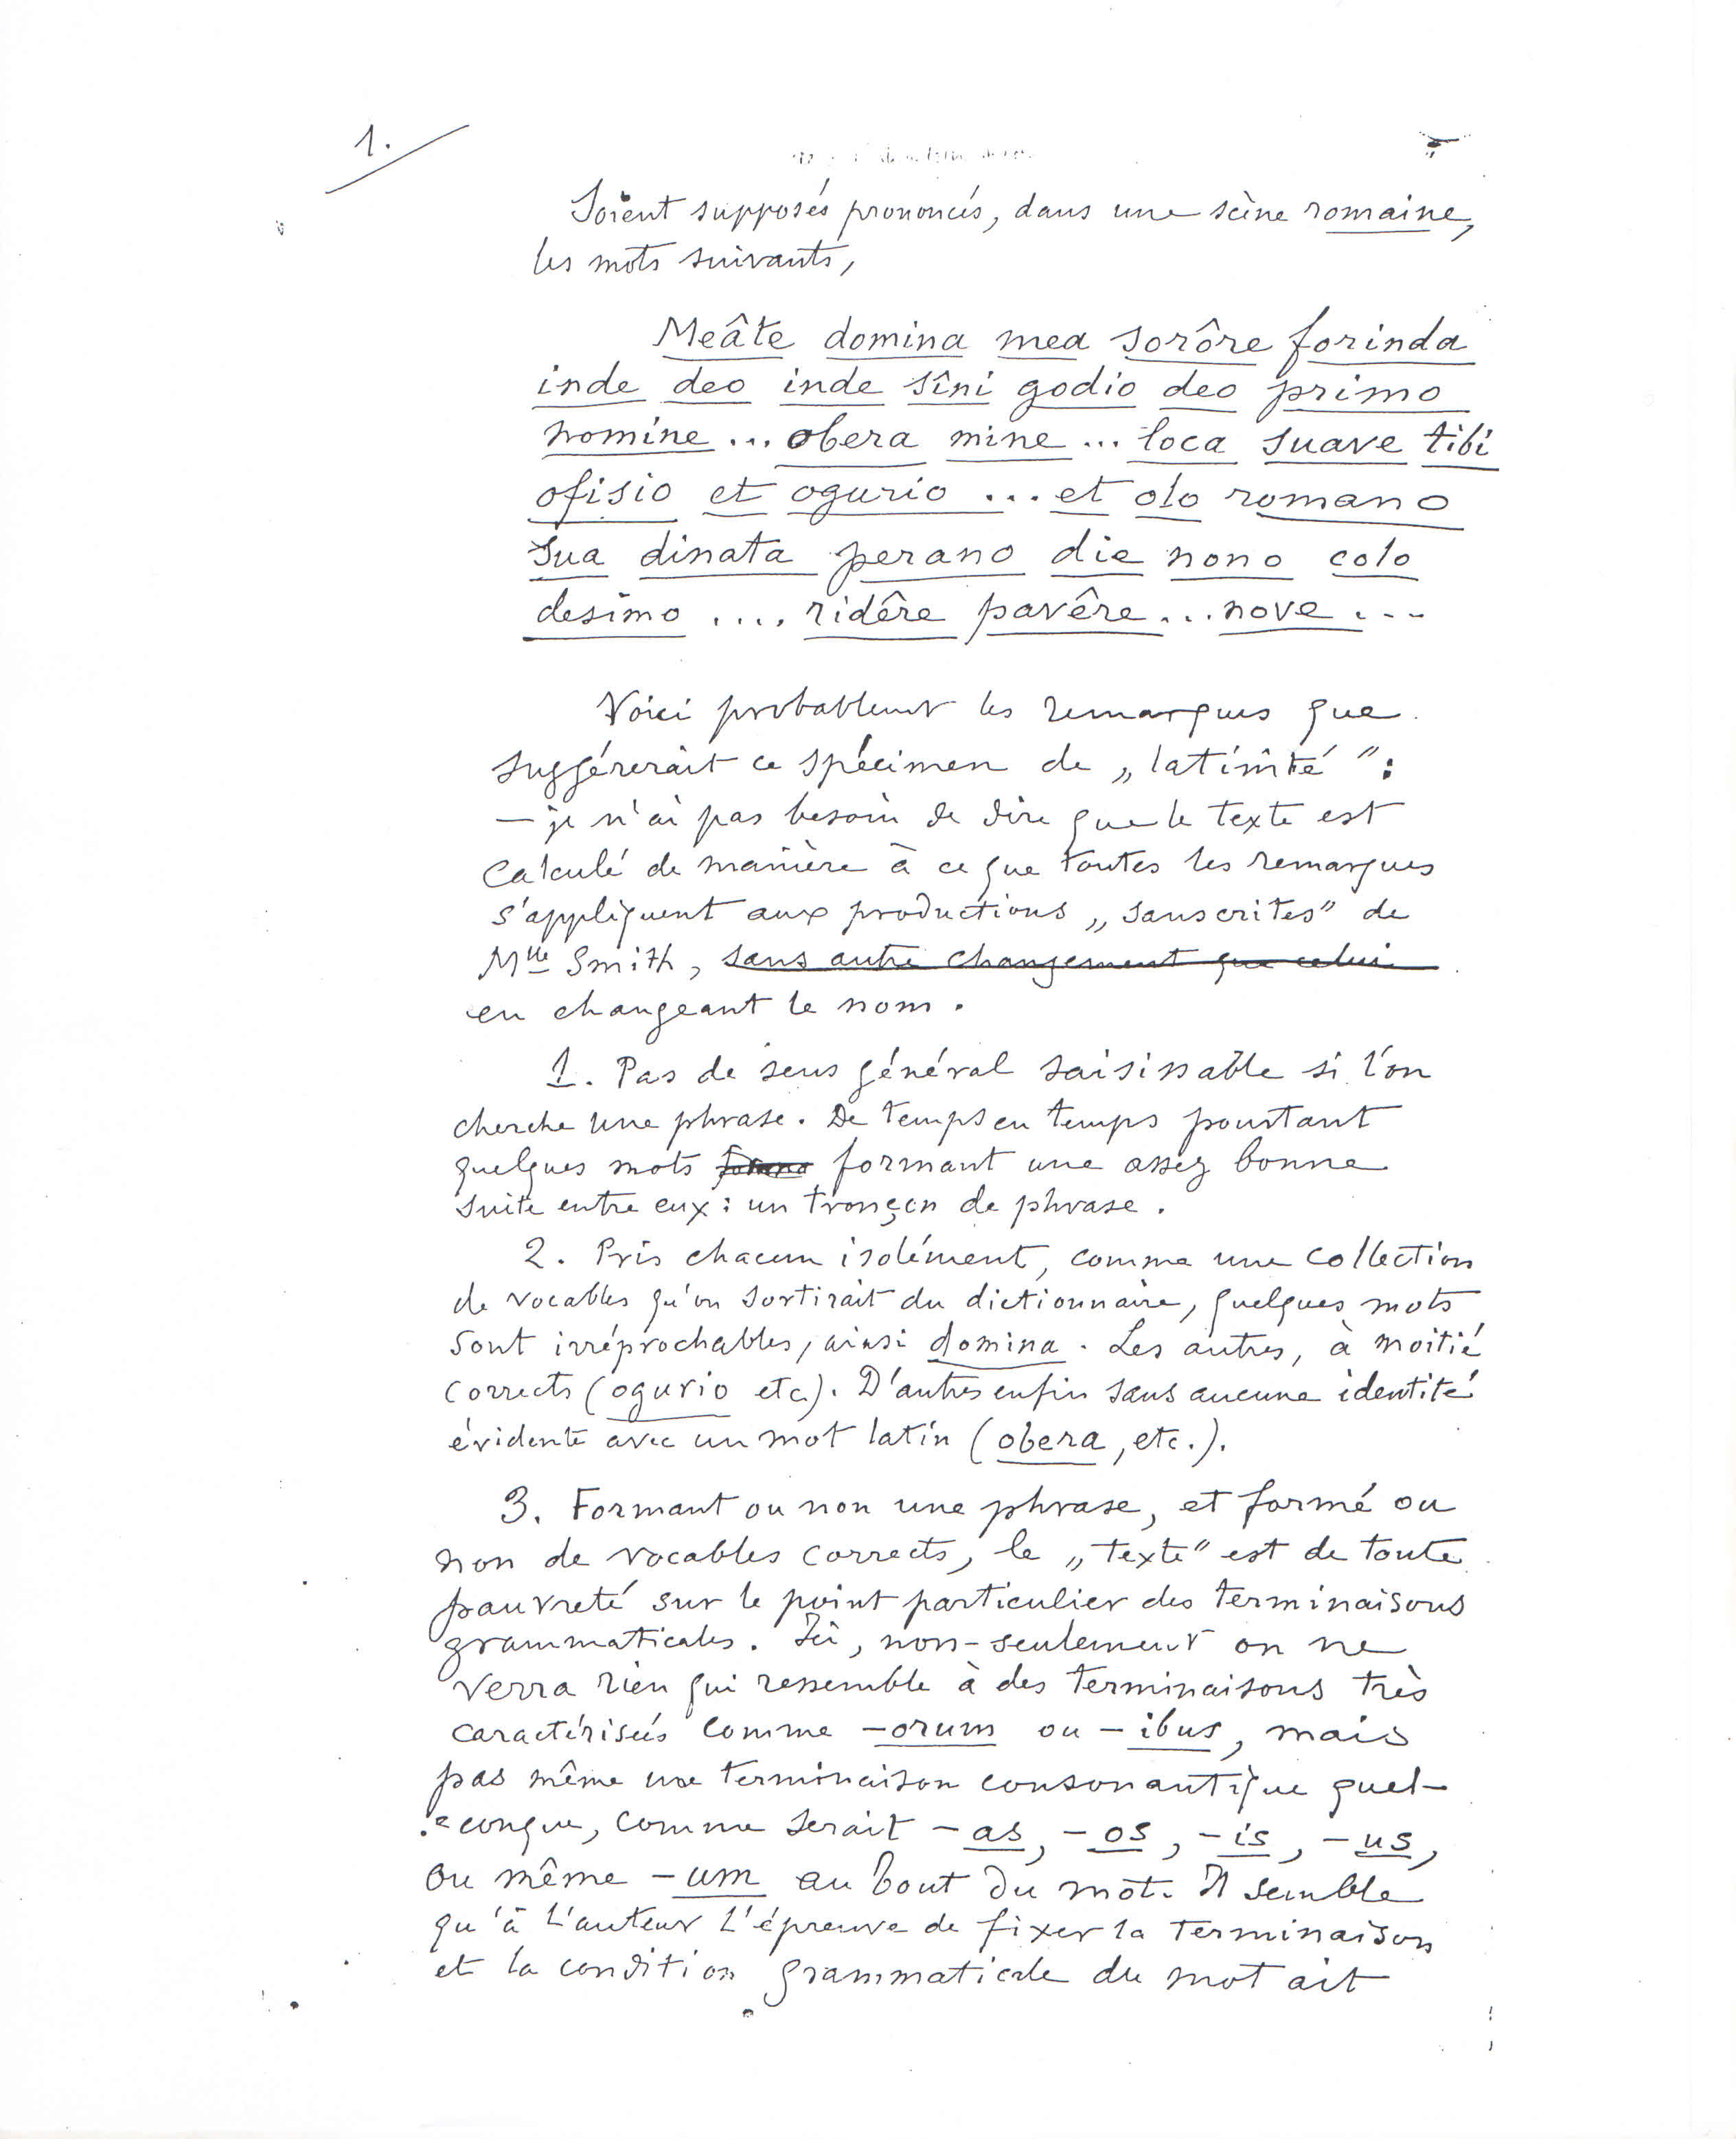 1.
Soient supposés prononcés, dans une scène romaine,
les mots suivants,
Meâte domina mea sorôre forinda
inde deo inde sîni godio deo primo
nomine ... obera mine ... loca suave tibi
ofisio et ogurio ... et olo romano
sua dinata perano die nono colo
desimo .... ridêre pavêre ... nove ....
Voici probablement les remarques que
suggérerait ce spécimen de „latinité" :
— je n'ai pas besoin de dire que le texte est
calculé de manière à ce que toutes les remarques
s'appliquent aux productions „sanscrites" de
Mlle Smith, sans autre changement que celui
en changeant le nom.
1. Pas de sens général saisissable si l'on
cherche une phrase. De temps en temps pourtant
quelques mots formant une assez bonne
suite entre eux : un tronçon de phrase.
2. Pris chacun isolément, comme une collection
de vocables qu'on sortirait du dictionnaire, quelques mots
sont irréprochables, ainsi domina. Les autres, à moitié
corrects (ogurio etc.). D'autres enfin sans aucune identité
évidente avec un mot latin (obera, etc.).
3. Formant ou non une phrase, et formé ou
non de vocables corrects, le „texte" est de toute
pauvreté sur le point particulier des terminaisons
grammaticales. Ici, non-seulement on ne
verra rien qui ressemble à des terminaisons très
caractérisées comme -orum ou -ibus, mais
pas même une terminaison consonantique quel-
conque, comme serait -as, -os, -is, -us,
ou même -um au bout du mot. Il semble
qu'à l'auteur l'épreuve de fixer la terminaison
et la condition grammaticale du mot ait